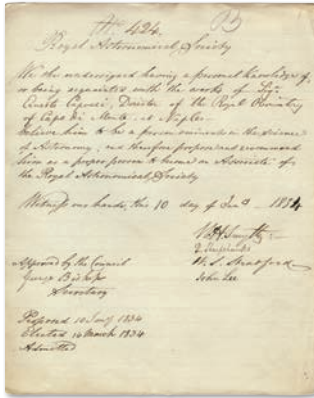 No. 424.
Royal Astronomical Society
We the undersigned having a personal knowledge of,
or being acquainted with the works of Sigr.
Ernesto Capocci, Director of the Royal Observatory
of Capo di Monte, at Naples
believe him to be a person eminent in the science
of Astronomy, and therefore propose and recommend
him as a proper person to become an Associate of
the Royal Astronomical Society
Witness our hands, this 10 day of Jany 1834
W. H. Smyth
J. Sheepshanks
W. S. Stratford
John Lee
Approved by the Council
George Bishop
Secretary
Proposed 10 Jany 1834
Elected 14 March 1834
Admitted